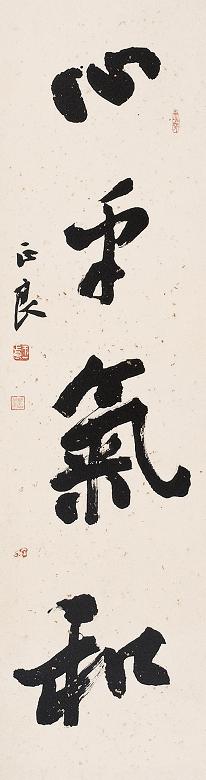 心平氣和
正良